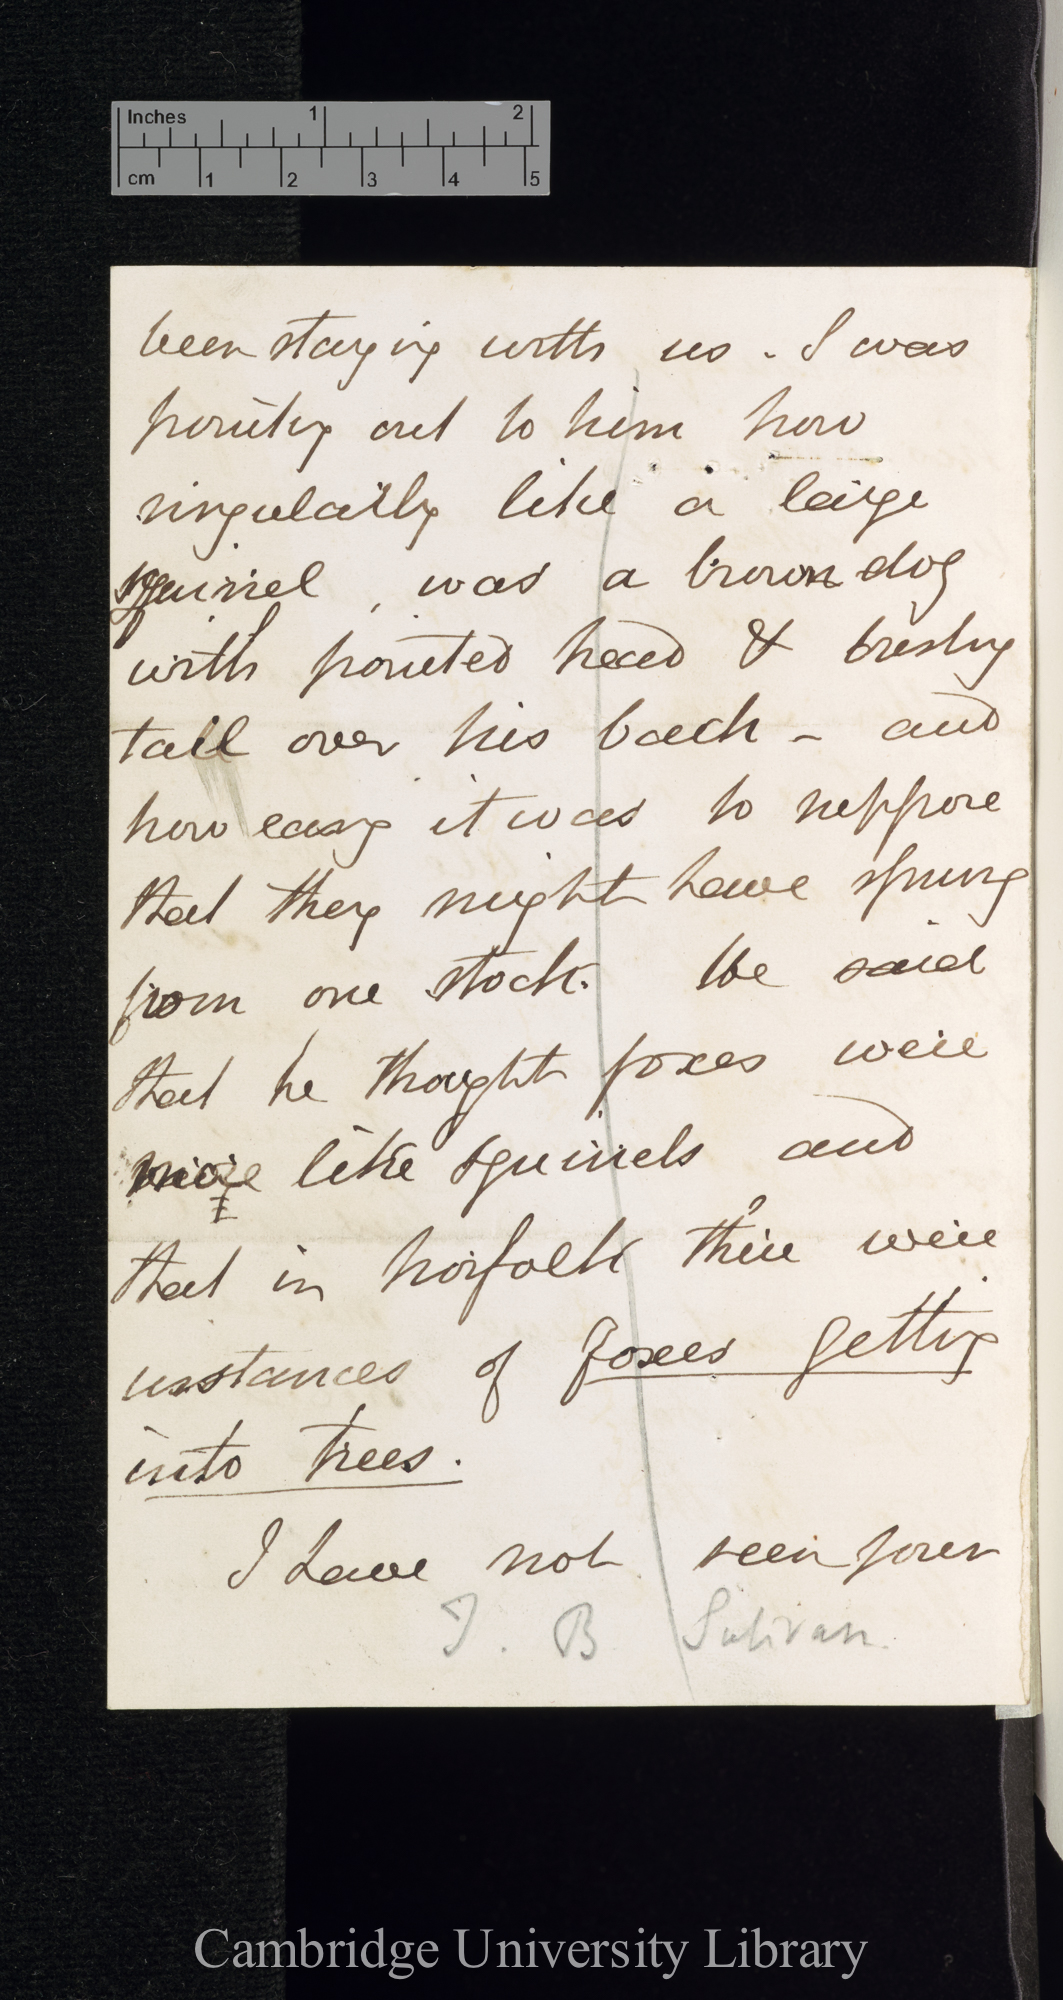 Inches 1 2
cm 1 2 3 4 5
been staying with us. I was
pointing out to him how
singularly like a large
squirrel, was a brown dog
with pointed head & brushy
tail over his back - and
how easy it was to suppose
that they might have sprung
from one stock. He said
that he thought foxes were
more like squirrels and
that in Norfolk there were
instances of foxes getting
into trees.
I have not seen your
B Sulivan
Cambridge University Library